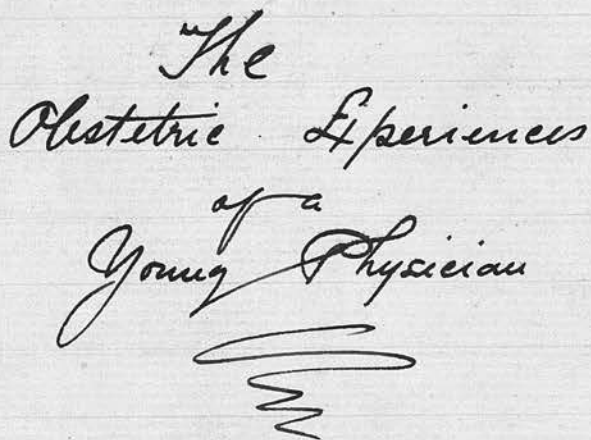 The
Obstetric Experiences
of a
Young Physician